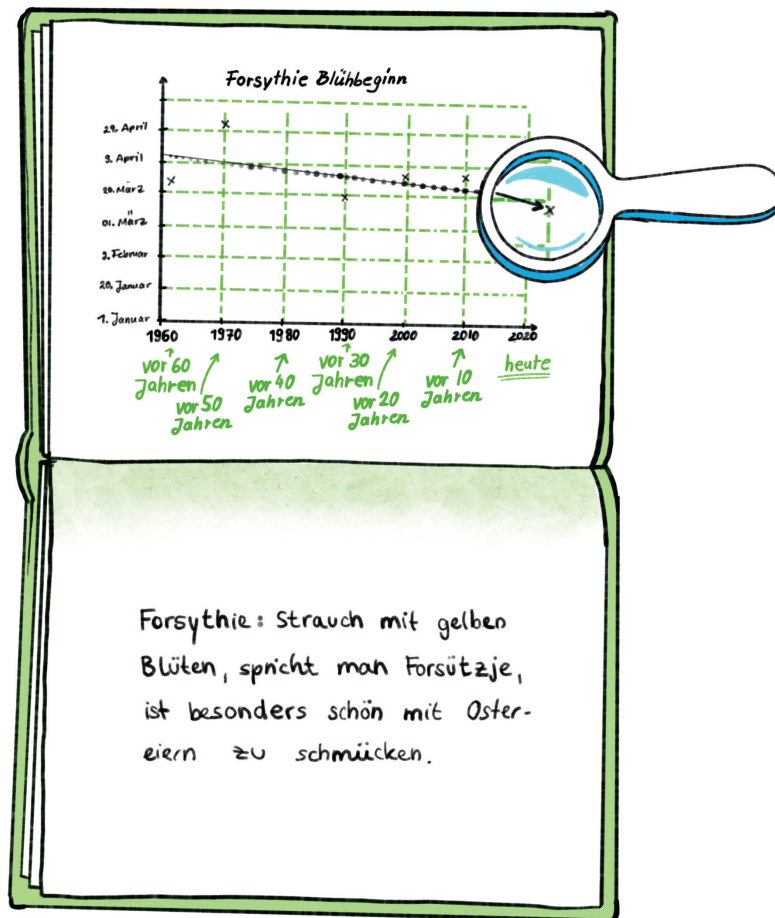 Forsythie Blühbeginn
29. April
9. April
20. März
01. März
9. Februar
20. Januar
1. Januar
1960 1970 1980 1990 2000 2010 2020
vor 60 Jahren
vor 50 Jahren
vor 40 Jahren
vor 30 Jahren
vor 20 Jahren
vor 10 Jahren
heute
Forsythie: Strauch mit gelben
Blüten, spricht man Forsützje,
ist besonders schön mit Oster-
eiern zu schmücken.